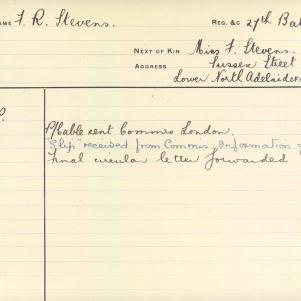 AME F. R. Stevens.
REG. &c 27th Bat
NEXT OF KIN Miss F. Stevens.
ADDRESS Sussex Street
Lower North Adelaide
P/Cable sent Commrs London.
"Slip" received from Commrs Information
Final circular letter forwarded